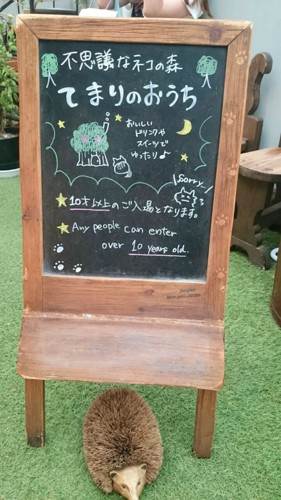 不思議なネコの森
てまりのおうち
おいしい
ドリンクや
スイーツで
ゆったり♪
Sorry
★10才以上のご入場となります。
★Any people can enter
over 10 years old.